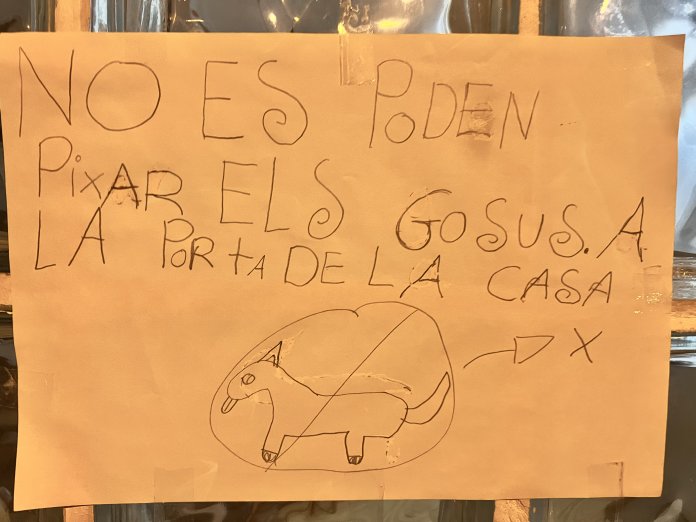 NO ES PODEN
PixAR ELS GOSUS. A
LA PORTA DE LA CASA
X